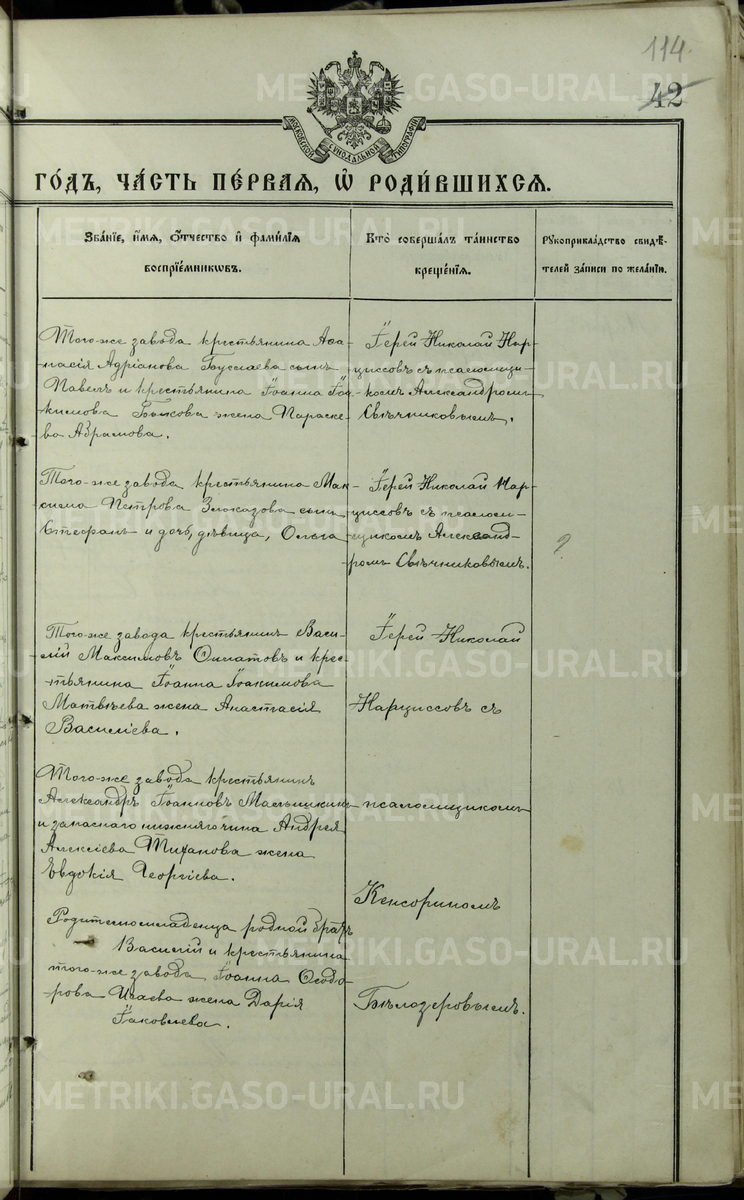 114.
42
МОСКОВСКОЙ СѴНОДАЛЬНОЙ ТИПОГРАФІИ
METRIKI.GASO-URAL.RU
ГО́ДЪ, ЧА́СТЬ ПЕ́РВАЯ, Ѽ РОДИ́ВШИХСЯ.
Зва́нїе, и́мѧ, ѻ҆́тчество и҆ фами́лїѧ
воспрїе́мникѡвъ.
Кто̀ соверша́лъ та́инство
креще́нїѧ.
Рꙋкоприкла́дство свидѣ́-
телей за́писи по жела́нїю.
Того-же завода крестьянина Аѳа-
насія Адріанова сынъ
Павелъ и крестьянина Іоанна Іоа-
кимова Быкова жена Параске-
ва Абрамова.
Іерей Николай Нар-
циссовъ съ псаломщи-
комъ Александромъ
Свѣчниковымъ.
Того-же завода крестьянина Мак-
сима Петрова Злоказова сынъ
Стефанъ и дочь, дѣвица, Ольга
Іерей Николай Нар-
циссовъ съ псалом-
щикомъ Александ-
ромъ Свѣчниковымъ.
?
Того-же завода крестьянинъ Васи-
лій Максимовъ и крес-
тьянина Іоанна Іоакимова
Матвѣева жена Анастасія
Василіева.
Іерей Николай
Нарциссовъ съ
Того-же завода крестьянинъ
Александръ Іоанновъ
и запаснаго нижняго чина Андрея
Алексіева Тиханова жена
Евдокія Георгіева.
псаломщикомъ
Кенсориномъ
Родителю младенца родной братъ
Василій и крестьянина
того-же завода Іоанна Ѳеодо-
рова Исаева жена Дарія
Іаковлева.
Бѣлозеровымъ.